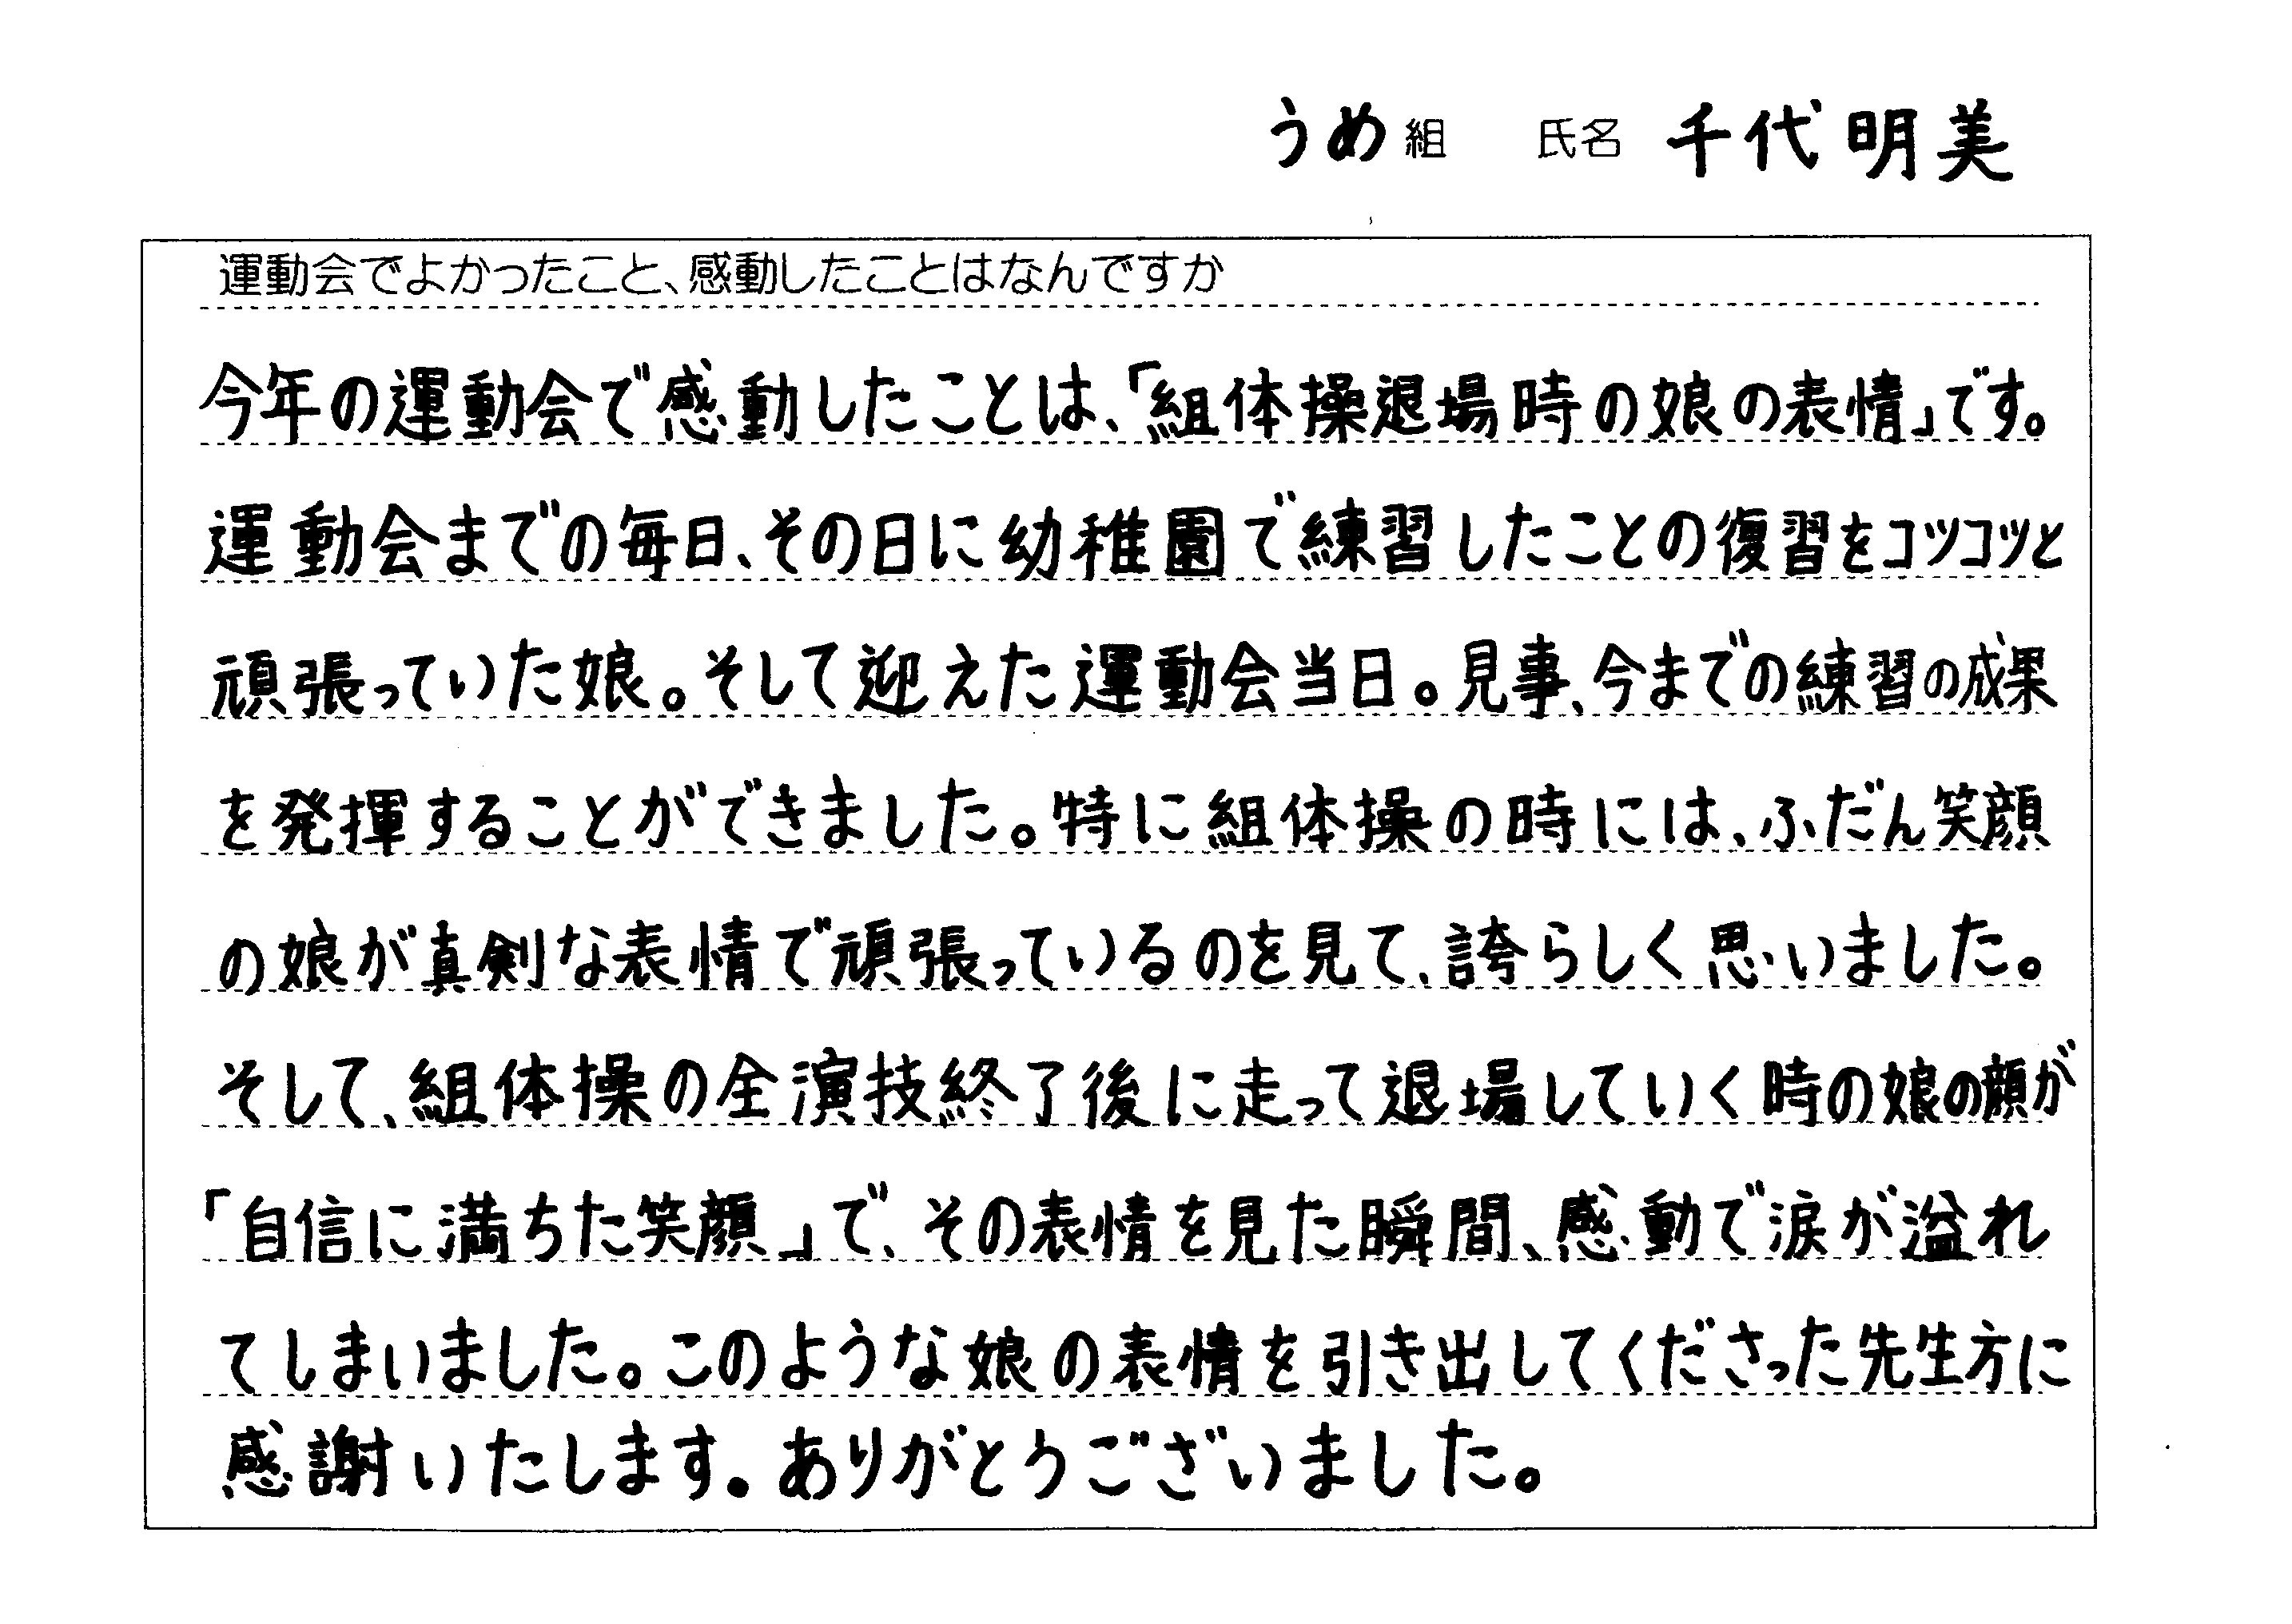 うめ組 氏名 千代明美
運動会でよかったこと、感動したことはなんですか
今年の運動会で感動したことは、「組体操退場時の娘の表情」です。
運動会までの毎日、その日に幼稚園で練習したことの復習をコツコツと
頑張っていた娘。そして迎えた運動会当日。見事、今までの練習の成果
を発揮することができました。特に組体操の時には、ふだん笑顔
の娘が真剣な表情で頑張っているのを見て、誇らしく思いました。
そして、組体操の全演技終了後に走って退場していく時の娘の顔が
「自信に満ちた笑顔」で、その表情を見た瞬間、感動で涙が溢れ
てしまいました。このような娘の表情を引き出してくださった先生方に
感謝いたします。ありがとうございました。